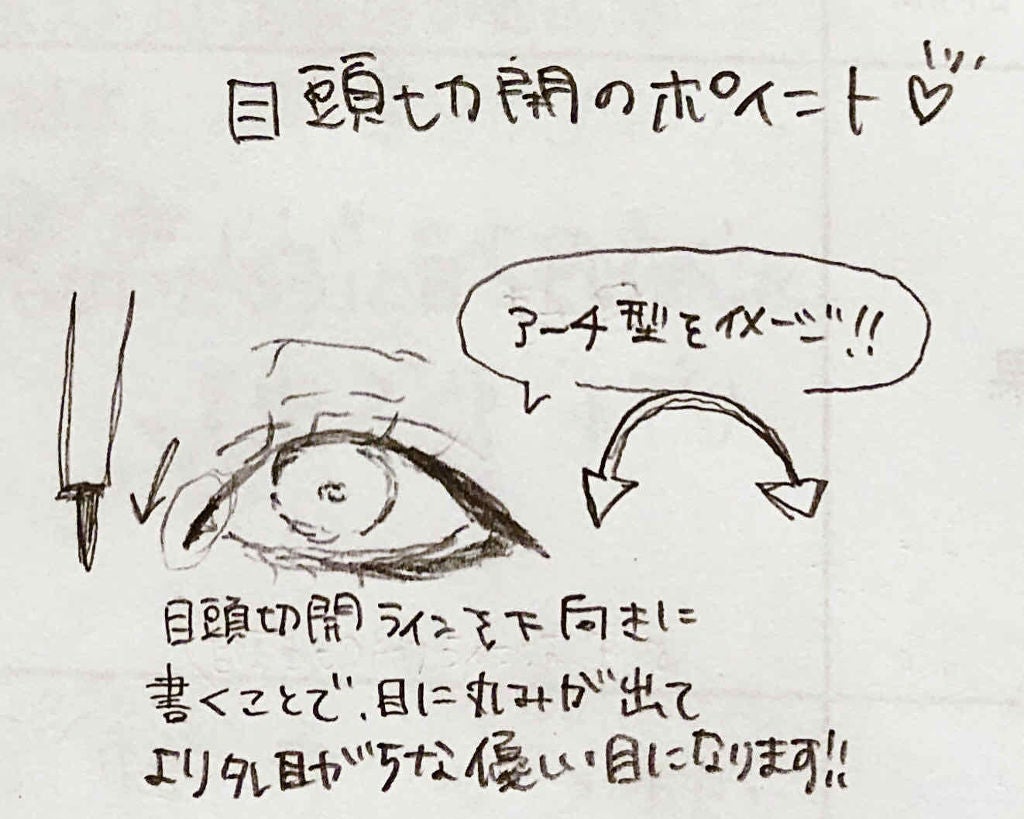 目頭切開のポイント♡
アーチ型をイメージ!!
目頭切開ラインを下向きに
書くことで、目に丸みが出て
より外目がちな優しい目になります!!